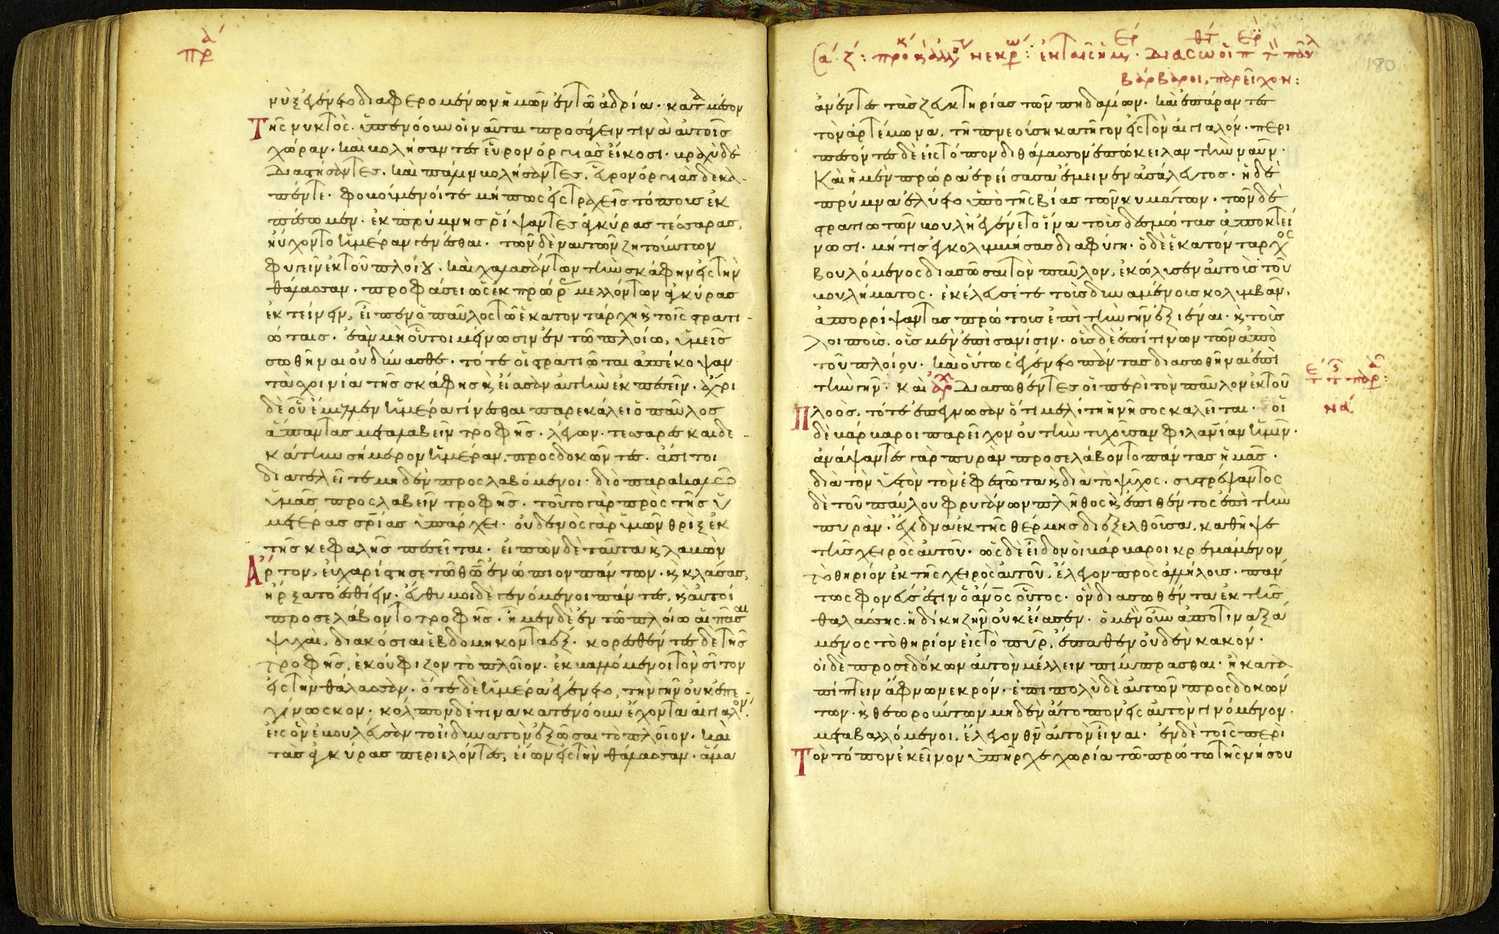 πρ α
νὺξ ἐγένετο διαφερομένων ἡμῶν ἐν τῶ ἀδρία· κατὰ μέσον
Τῆς νυκτὸς· ὑπενόουν οἱ ναῦται προσάγειν τινὰ αὐτοῖς
χώραν· καὶ βολήσαντες εὗρον ὀργυιὰς εἴκοσι· βραχὺ δὲ
διαστήσαντες· καὶ πάλιν βολήσαντες, εὗρον ὀργυιὰς δεκα
πέντε· φοβούμενοί τε μήπως εἰς τραχεῖς τόπους ἐκ
πέσωμεν· ἐκ πρύμνης ῥίψαντες ἀγκύρας τέσσαρας,
ηὔχοντο ἡμέραν γενέσθαι· τῶν δὲ ναυτῶν ζητούντων
φυγεῖν ἐκ τοῦ πλοίου· καὶ χαλασάντων τὴν σκάφην εἰς τὴν
θάλασσαν· προφάσει ὡς ἐκ πρώρας μελλόντων ἀγκύρας
ἐκτείνειν, εἶπεν ὁ παῦλος τῶ ἑκατοντάρχη καὶ τοῖς στρατι
ώταις· ἐὰν μὴ οὗτοι μείνωσιν ἐν τῶ πλοίω, ὑμεῖς
σωθῆναι οὐ δύνασθε· τότε οἱ στρατιῶται ἀπέκοψαν
τὰ σχοινία τῆς σκάφης καὶ εἴασαν αὐτὴν ἐκπεσεῖν· ἄχρι
δὲ οὗ ἔμελλεν ἡμέρα γίνεσθαι παρεκάλει ὁ παῦλος
ἅπαντας μεταλαβεῖν τροφῆς· λέγων· τεσσαρεσκαιδε
κάτην σήμερον ἡμέραν, προσδοκῶντες· ἄσιτοι
διατελεῖτε μηδὲν προσλαβόμενοι· διὸ παρακαλῶ
ὑμᾶς προσλαβεῖν τροφῆς· τοῦτο γὰρ πρὸς τῆς ὑ
μετέρας σρίας ὑπάρχει· οὐδενὸς γὰρ ὑμῶν θρὶξ ἐκ
τῆς κεφαλῆς πεσεῖται· εἰπὼν δὲ ταῦτα καὶ λαβὼν
Ἄρτον, εὐχαρίστησε τῶ θῶ ἐνώπιον πάντων· καὶ κλάσας,
ἤρξατο ἐσθίειν· εὔθυμοι δὲ γενόμενοι πάντες, καὶ αὐτοὶ
προσελάβοντο τροφῆς· ἦμεν δὲ ἐν τῶ πλοίω αἱ πᾶσαι
ψυχαὶ, διακόσιαι ἑβδομηκονταέξ· κορεσθέντες δὲ τῆς
τροφῆς, ἐκούφιζον τὸ πλοῖον· ἐκβαλλόμενοι τὸν σῖτον
εἰς τὴν θάλασσαν· ὅτε δὲ ἡμέρα ἐγένετο, τὴν γῆν οὐκ ἐπε
γίνωσκον· κόλπον δέ τινα κατενόουν ἔχοντα αἰγιαλόν·
εἰς ὃν ἐβουλεύσαντο εἰ δύναιτο ἐξῶσαι τὸ πλοῖον· καὶ
τὰς ἀγκύρας περιελόντες, εἴων εἰς τὴν θάλασσαν· ἅμα
διασωθ
βάρβαροι, παρεῖχον:
180
ἀνέντες τὰς ζευκτηρίας τῶν πηδαλίων· καὶ ἐπάραντες
τὸν ἀρτέμωνα, τῆ πνεούση κατῆγον εἰς τὸν αἰγιαλόν· περι
πεσόντες δὲ εἰς τόπον διθάλασσον ἐπώκειλαν τὴν ναῦν·
Καὶ ἡ μὲν πρώρα ἐρείσασα ἔμεινεν ἀσάλευτος· ἡ δὲ
πρύμνα ἐλύετο ὑπὸ τῆς βίας τῶν κυμάτων· τῶν δὲ
στρατιωτῶν βουλὴ ἐγένετο ἵνα τοὺς δεσμώτας ἀποκτεί
νωσι· μήτις ἐκκολυμβήσας διαφύγη· ὁ δὲ ἑκατόνταρχος
βουλόμενος διασῶσαι τὸν παῦλον, ἐκώλυσεν αὐτοὺς τοῦ
βουλήματος· ἐκέλευσέ τε τοὺς δυναμένους κολυμβᾶν,
ἀπορρίψαντας πρώτους ἐπὶ τὴν γῆν ἐξιέναι· καὶ τοὺς
λοιποὺς· οὓς μὲν ἐπὶ σανίσιν· οὓς δὲ ἐπί τινων τῶν ἀπὸ
τοῦ πλοίου· καὶ οὕτως ἐγένετο πάντας διασωθῆναι ἐπὶ
τὴν γῆν· καὶ ἀρχ διασωθέντες οἱ περὶ τὸν παῦλον ἐκ τοῦ
Πλοὸς, τότε ἐπέγνωσαν ὅτι μελίτη ἡ νῆσος καλεῖται· οἱ
δὲ βάρβαροι παρεῖχον οὐ τὴν τυχοῦσαν φιλανίαν ἡμῖν·
ἀνάψαντες γὰρ πυρὰν προσελάβοντο πάντας ἡμᾶς·
διὰ τὸν ὑετὸν τὸν ἐφεστῶτα καὶ διὰ τὸ ψῦχος· συστρέψαντος
δὲ τοῦ παύλου φρυγάνων πλῆθος καὶ ἐπιθέντος ἐπὶ τὴν
πυρὰν· ἔχιδνα ἐκ τῆς θέρμης διεξελθοῦσα, καθῆψε
τῆς χειρὸς αὐτοῦ· ὡς δὲ εἶδον οἱ βάρβαροι κρεμάμενον
τὸ θηρίον ἐκ τῆς χειρὸς αὐτοῦ, ἔλεγον πρὸς ἀλλήλους· πάν
τως φονεύς ἐστιν ὁ ἄνος οὗτος· ὃν διασωθέντα ἐκ τῆς
θαλάσσης ἡ δίκη ζῆν οὐκ εἴασεν· ὁ μὲν οὖν ἀποτιναξά
μενος τὸ θηρίον εἰς τὸ πῦρ, ἔπαθεν οὐδὲν κακόν·
οἱ δὲ προσεδόκων αὐτὸν μέλλειν πίμπρασθαι· ἢ κατα
πίπτειν ἄφνω νεκρόν· ἐπὶ πολὺ δὲ αὐτῶν προσδοκών
των· καὶ θεωρούντων μηδὲν ἄτοπον εἰς αὐτὸν γινόμενον·
μεταβαλλόμενοι, ἔλεγον θν αὐτὸν εἶναι· ἐν δὲ τοῖς περὶ
Τὸν τόπον ἐκεῖνον ὑπῆρχε χωρία τῶ πρώτω τῆς νήσου
να